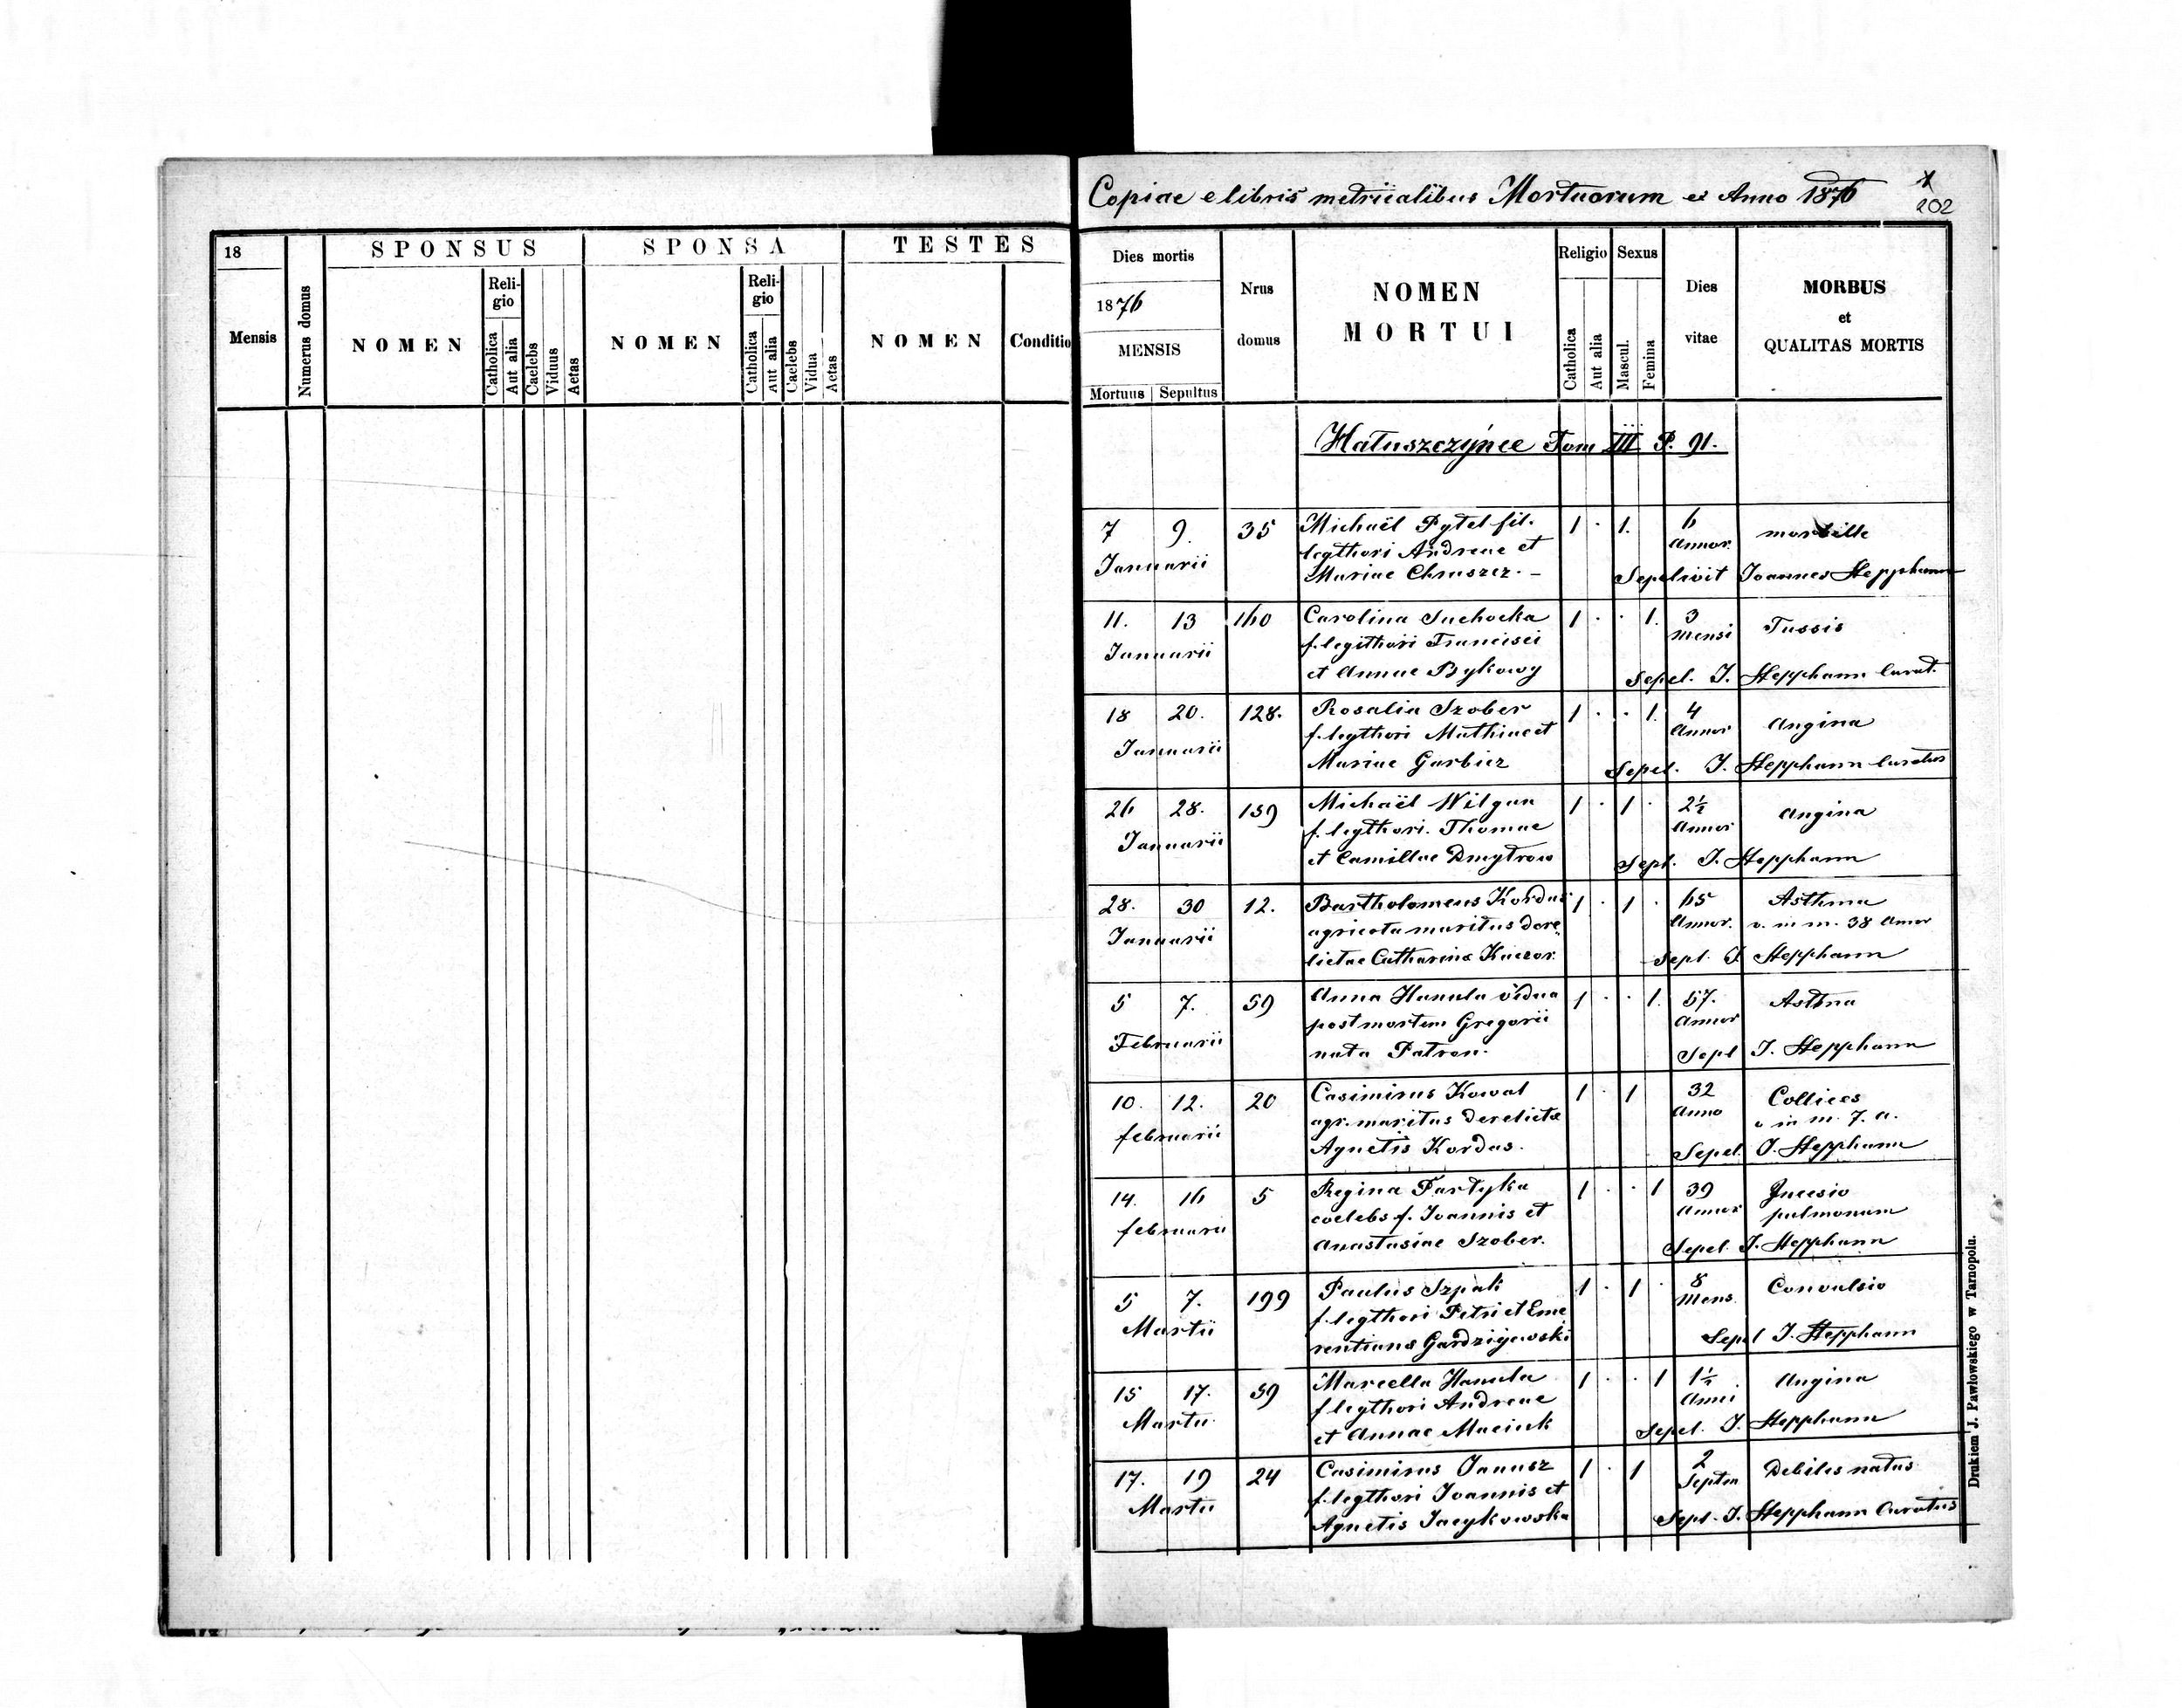 Copiae e libris metricalibus Mortuorum ex Anno 1876
202
18
Mensis
Numerus domus
SPONSUS
NOMEN
Religio
Catholica
Aut alia
Caelebs
Viduus
Aetas
SPONSA
NOMEN
Religio
Catholica
Aut alia
Caelebs
Vidua
Aetas
TESTES
NOMEN
Conditio
Dies mortis
1876
MENSIS
Mortuus Sepultus
Nrus
domus
NOMEN
MORTUI
Religio
Catholica
Aut alia
Sexus
Mascul.
Femina
Dies
vitae
MORBUS
et
QUALITAS MORTIS
Hatuszczyńce Tom III P. 91.
7 9. 35 Michaël Pytel fil. 1 . 1. 6 morbille
Januarii legthori Andreae et Annor.
Mariae Chruszcz. - Sepelivit Joannes Stepphann
11. 13 160 Carolina Suchocka 1 . . 1. 3 Tussis
Januarii f. legithori Francisci Mensi
et Annae Bykowy Sepel. J. Stepphann Curat.
18 20. 128. Rosalia Szober 1 . . 1. 4 Angina
Januarii f. legthori Mathiae et Annor
Mariae Garbicz Sepel. J. Stepphann Curatus
26 28. 159 Michaël Wilgan 1 . 1 . 2½ Angina
Januarii f. legthori. Thomae Annor
et Camillae Dmytrow Sepl. J. Stepphann
28. 30 12. Bartholomeus Kordus 1 . 1 . 65 Asthma
Januarii agricola maritus dere„ Annor. v. in m. 38 Annor
lictae Catharinae Kaczor. Sepl. J. Stepphann
5 7. 59 Anna Hanula vidua 1 . . 1. 57. Astma
Februarii post mortem Gregorii Annor
nata Patron. Sepl J. Stepphann
10. 12. 20 Casimirus Kowal 1 . 1 32 Collices
februarii agr. maritus derelictae Anno v in m. 7. a.
Agnetis Kordas. Sepel. J. Stepphann
14. 16 5 Regina Fartyka 1 . . 1 39 pulmonum
februarii coelebs f. Joannis et Annor
Anastasiae Szober. Sepel J. Stepphann
5 7. 199 Paulus Szpak 1 . 1 . 8 Convulsio
Martii f. legthori Petri et Eme Mens.
rentiana Gardzijewski Sepel J. Stepphann
15 17. 59 Marcella Hanula 1 . . 1 1½ Angina
Martii f legthori Andreae Anni
et Annae Maciuk Sepel. J. Stepphann
17. 19 24 Casimirus Janusz 1 . 1 2 Debiles natus
Martii f. legthori Joannis et Septm
Agnetis Jacykowska Sepl. J. Stepphann Curatus
Drukiem J. Pawłowskiego w Tarnopolu.